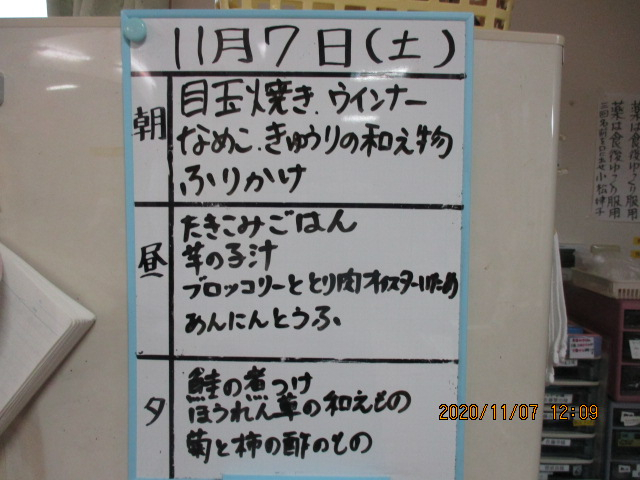 11月7日(土)
朝
目玉焼き、ウインナー
なめこ、きゅうりの和え物
ふりかけ
昼
たきこみごはん
芋の子汁
ブロッコリーととり肉オイスターいため
あんにんとうふ
夕
鮭の煮つけ
ほうれん草の和えもの
菊と柿の酢のもの
薬は食後ゆっくり服用
2020/11/07 12:09